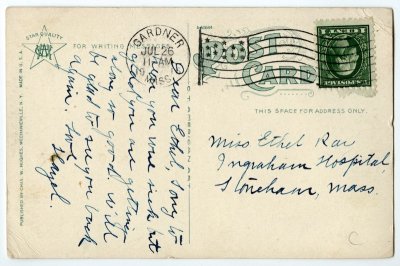 STAR QUALITY
FOR WRITING
PUBLISHED BY CHAS. W. HUGHES, MECHANICVILLE, N. Y. MADE IN U. S. A.
GARDNER
JUL 26
11 AM
MASS.
POST
CARD
THIS SPACE FOR ADDRESS ONLY.
Dear Ethel, Sorry to
hear you were sick but
glad you are getting
along so good will
be glad to see you back
again. Love
Hazel.
Miss Ethel Rae
Ingraham Hospital,
Stoneham, Mass.
C